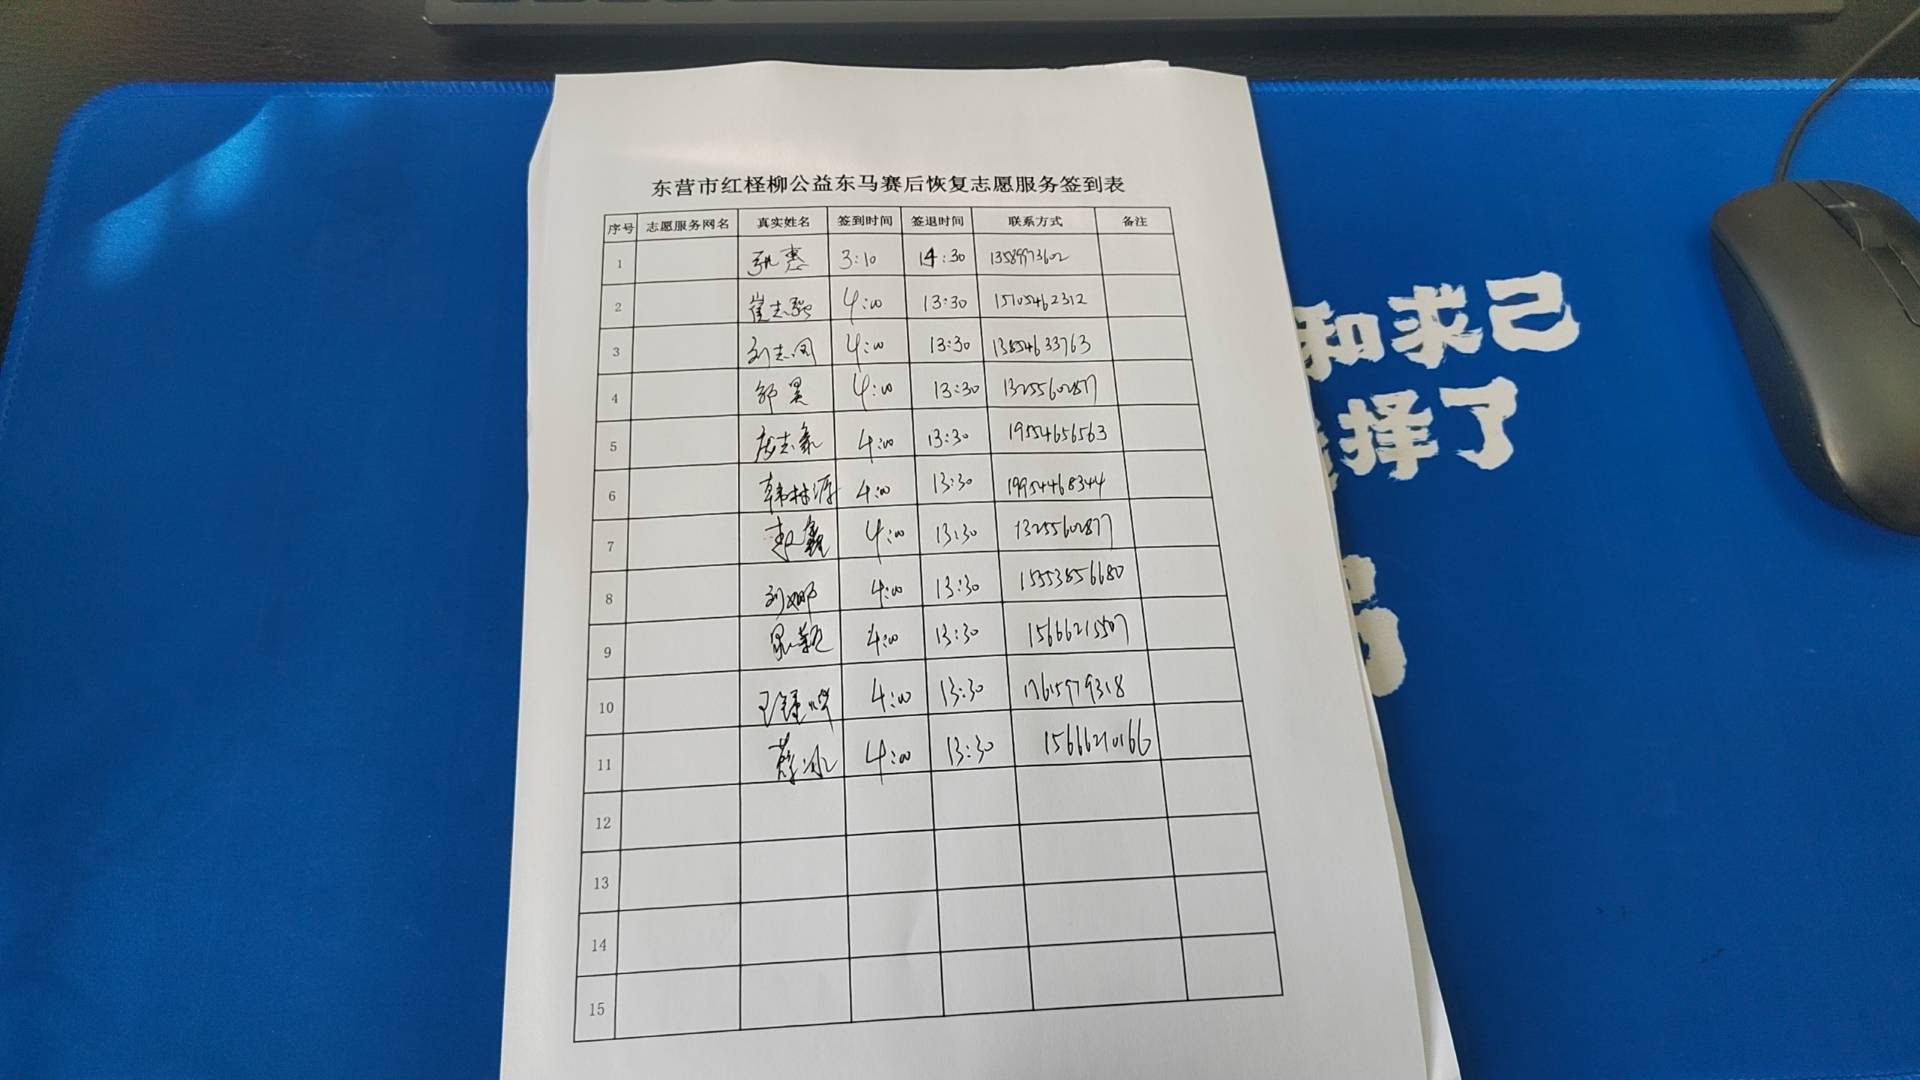 东营市红柽柳公益东马赛后恢复志愿服务签到表
序号 志愿服务网名 真实姓名 签到时间 签退时间 联系方式 备注
1 张惠 3:10 14:30 13589973602
2 崔志强 4:00 13:30 15105462312
3 刘志同 4:00 13:30 13854633763
4 邹昊 4:00 13:30 13255602877
5 4:00 13:30 19554656563
6 韩林源 4:00 13:30 19954468344
7 4:00 13:30 13255602877
8 刘娜 4:00 13:30 15553856680
9 4:00 13:30 15666215507
10 4:00 13:30 17615979318
11 薛冰 4:00 13:30 15666210166
12
13
14
15
和求己
择了